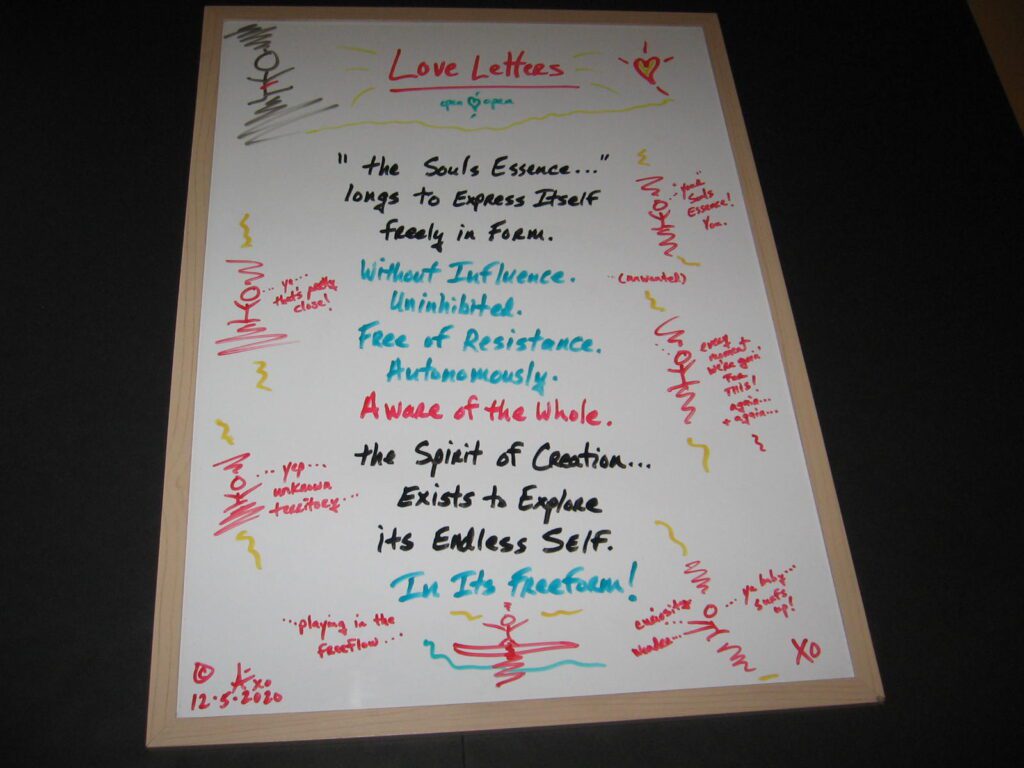 Love Letters
open open
" the Souls Essence... "
longs to Express Itself
freely in Form.
Without Influence.
Uninhibited.
Free of Resistance.
Autonomously.
Aware of the Whole.
the Spirit of Creation...
Exists to Explore
its Endless Self.
In Its Freeform!
..."your
Souls
Essence!
You.
...(unwanted)
...ya...
that's pretty
close!
every
moment...
we're goin
For
THIS!
again...
+ again...
...yep...
unknown
territory...
...ya baby...
Surf's
up!
curiosity
wonder...
...playing in the
freeflow...
XO
© A xo
12.5.2020